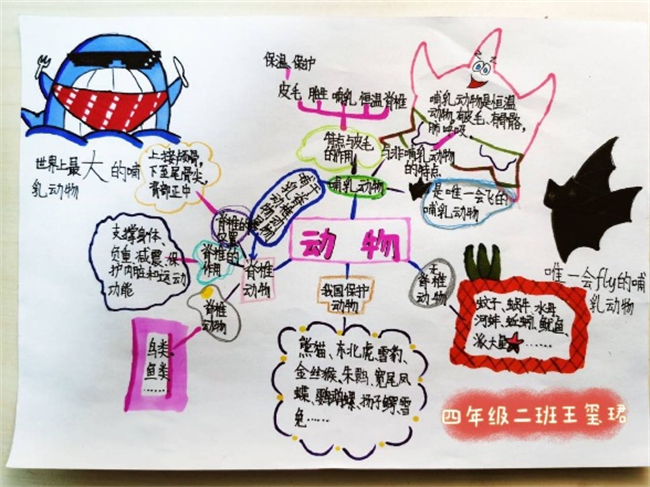 保温 保护
皮毛 胎生 哺乳 恒温 脊椎
哺乳动物是恒温
动物,有皮毛,有骨骼,
肺呼吸
特点与皮毛
的作用
与非哺乳
动物
的特点
哺乳动物
是唯一会飞的
哺乳动物
世界上最大的哺
乳动物
上接颅骨,
下至尾骨尖,
背部正中
脊椎的
作用
支撑身体、
负重、减震、保
护内脏和运动
功能
动物
脊椎
动物
脊椎
动物
鸟类、
鱼类、
……
我国保护
动物
熊猫、东北虎、雪豹、
金丝猴、朱鹮、宽尾凤
蝶、鹦鹉螺、扬子鳄、雪
兔……
无
脊椎
动物
蚊子、蜗牛、水母
河蚌、蚯蚓、鱿鱼、
派大星……
唯一会fly的哺
乳动物
四年级二班王玺珺